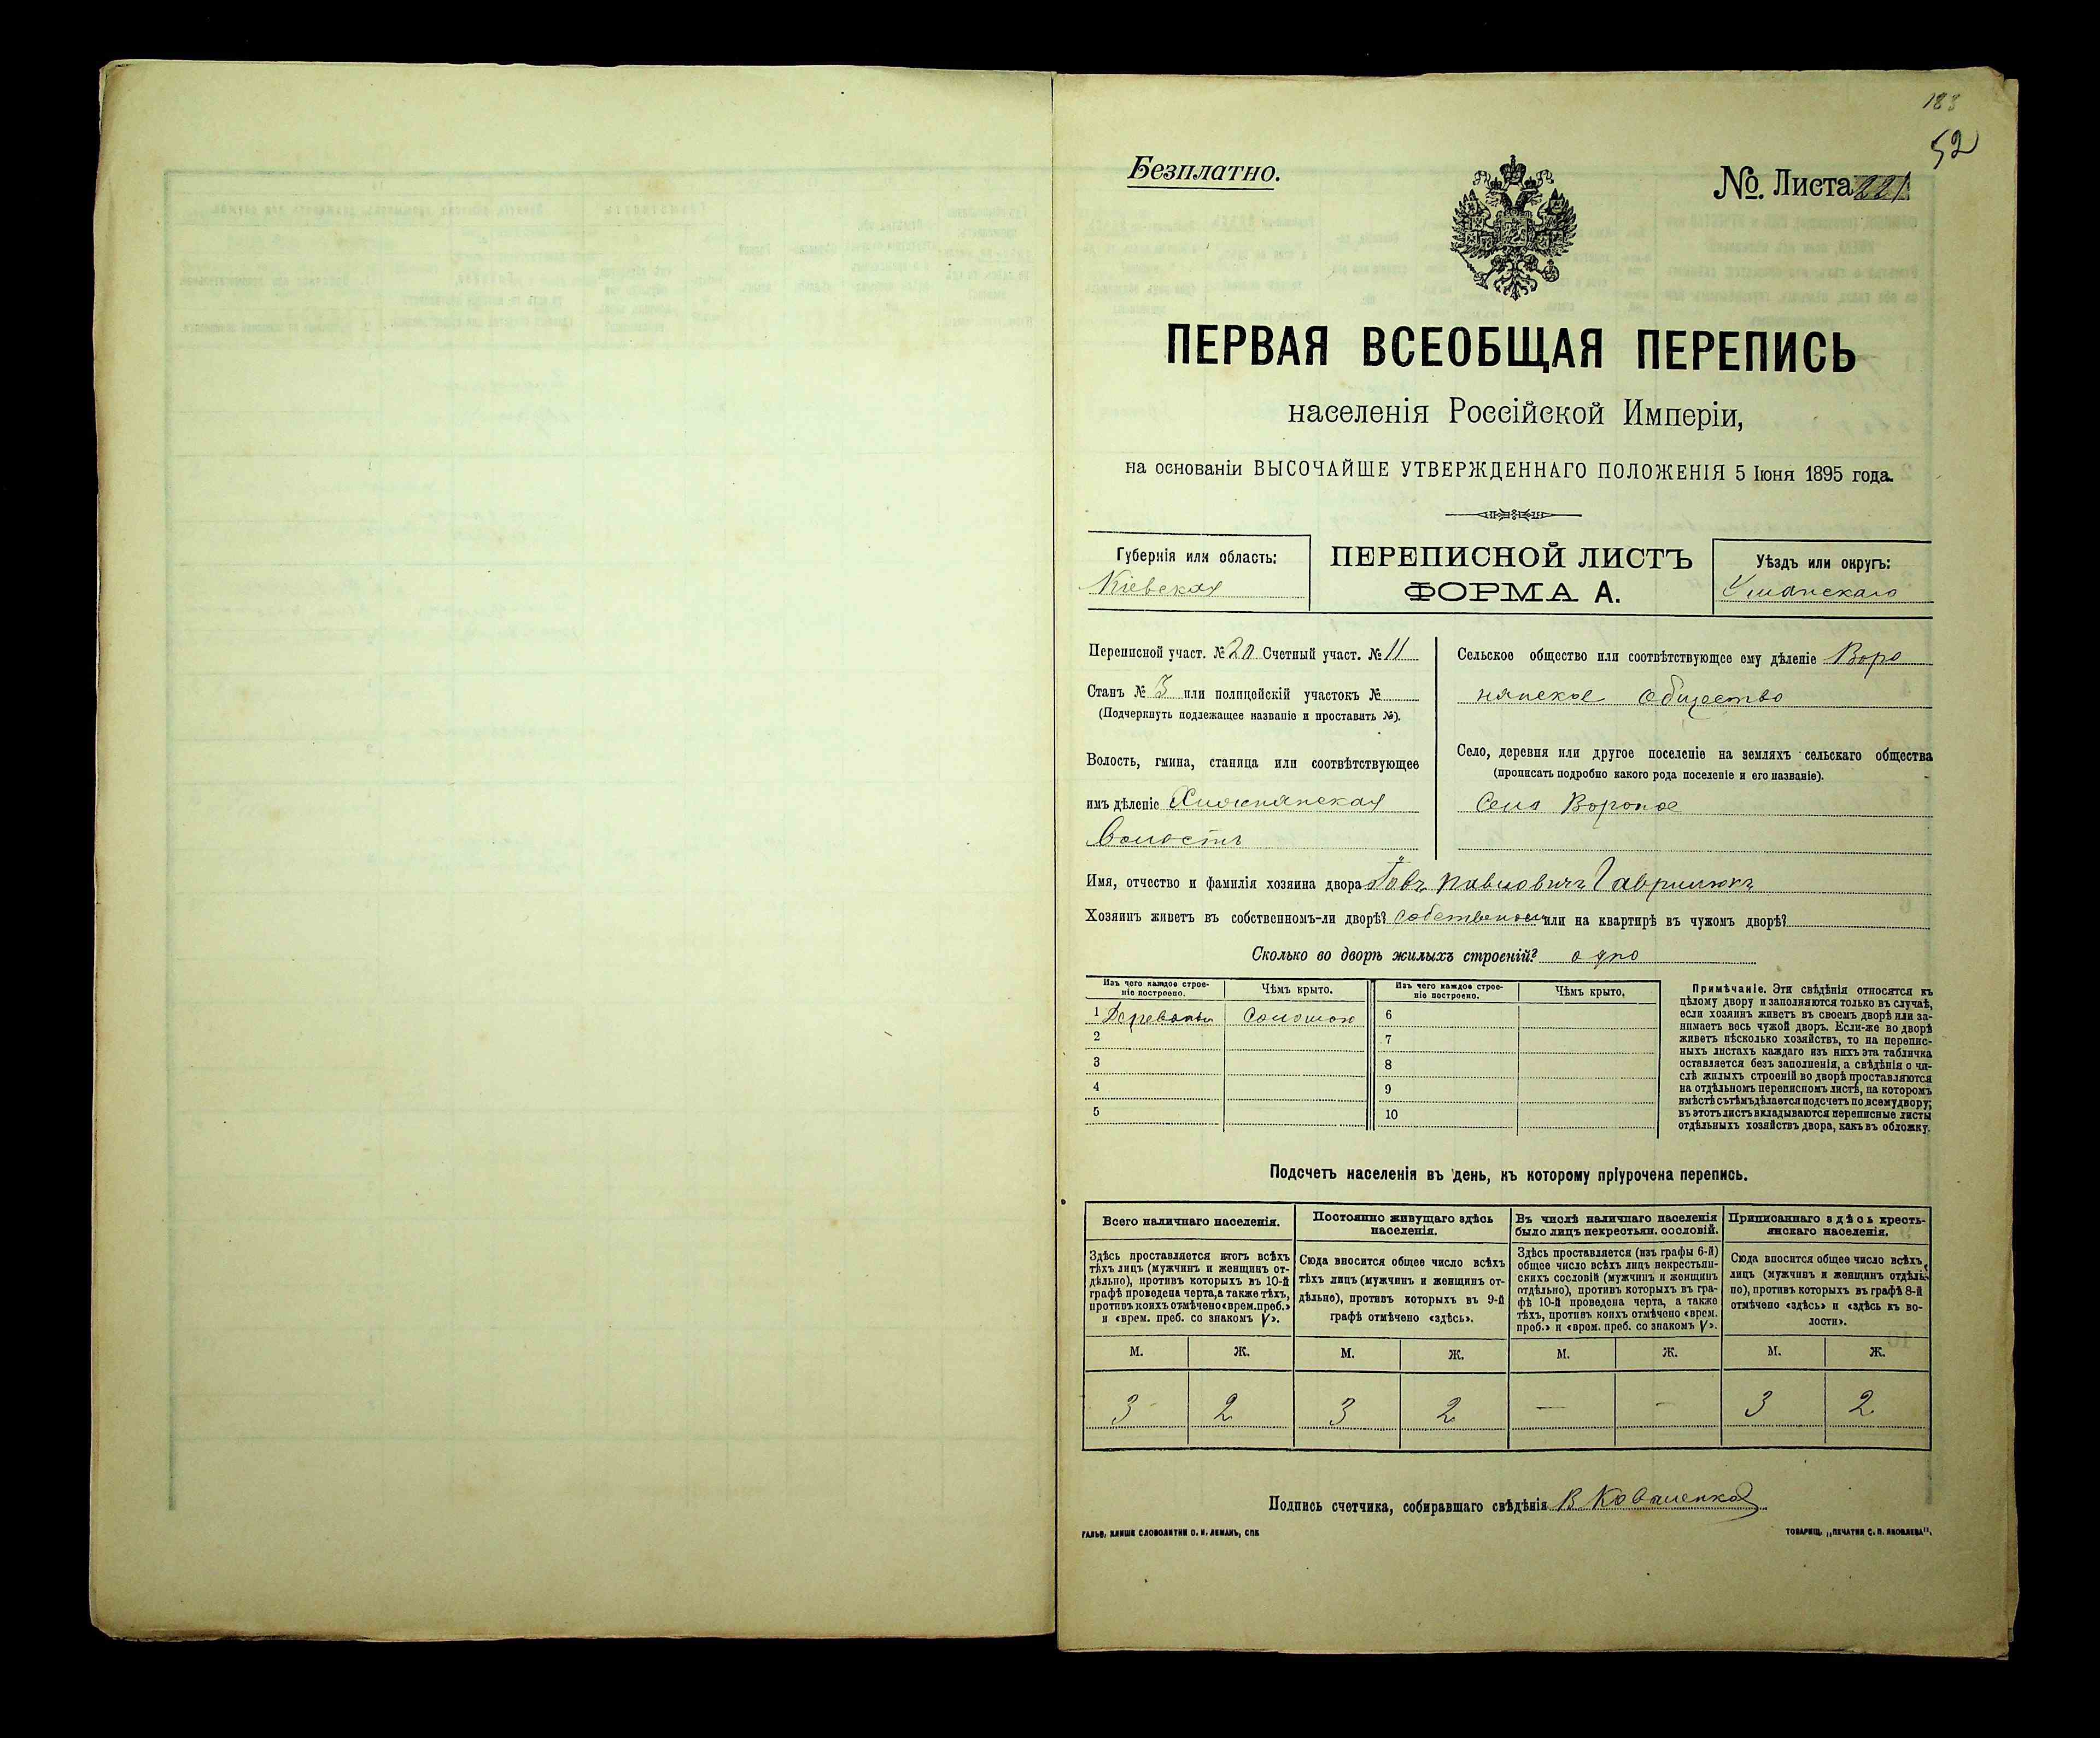 188
52
Безплатно.
№. Листа 221
ПЕРВАЯ ВСЕОБЩАЯ ПЕРЕПИСЬ
населенія Россійской Имперіи,
на основаніи ВЫСОЧАЙШЕ УТВЕРЖДЕННАГО ПОЛОЖЕНІЯ 5 Іюня 1895 года.
Губернія или область:
Кіевская
ПЕРЕПИСНОЙ ЛИСТЪ
ФОРМА А.
Уѣздъ или округъ:
Уманскаго
Переписной участ. № 20 Счетный участ. № 11
Станъ № 3 или полицейскій участокъ №
(Подчеркнуть подлежащее названіе и проставить №).
Волость, гмина, станица или соотвѣтствующее
имъ дѣленіе Хижнянская
Волость
Сельское общество или соотвѣтствующее ему дѣленіе Воро
нянское общество
Село, деревня или другое поселеніе на земляхъ сельскаго общества
(прописать подробно какого рода поселеніе и его названіе).
Село Вороное
Имя, отчество и фамилія хозяина двора Іовъ Павловичъ Гаврилюкъ
Хозяинъ живетъ въ собственномъ-ли дворѣ? собственом или на квартирѣ въ чужомъ дворѣ?
Сколько во дворѣ жилыхъ строеній? одно
Изъ чего каждое строе-
ніе построено.
Чѣмъ крыто.
Изъ чего каждое строе-
ніе построено.
Чѣмъ крыто.
1 Деревяны Соломою 6
2 7
3 8
4 9
5 10
Примѣчаніе. Эти свѣдѣнія относятся къ
цѣлому двору и заполняются только въ случаѣ,
если хозяинъ живетъ въ своемъ дворѣ или за-
нимаетъ весь чужой дворъ. Если-же во дворѣ
живетъ нѣсколько хозяйствъ, то на перепис-
ныхъ листахъ каждаго изъ нихъ эта табличка
оставляется безъ заполненія, а свѣдѣнія о чи-
слѣ жилыхъ строеній во дворѣ проставляются
на отдѣльномъ переписномъ листѣ, на которомъ
вмѣстѣ съ тѣмъ дѣлается подсчетъ по всему двору;
въ этотъ листъ вкладываются переписные листы
отдѣльныхъ хозяйствъ двора, какъ въ обложку.
Подсчетъ населенія въ день, къ которому пріурочена перепись.
Всего наличнаго населенія.
Здѣсь проставляется итогъ всѣхъ
тѣхъ лицъ (мужчинъ и женщинъ от-
дѣльно), противъ которыхъ въ 10-й
графѣ проведена черта, а также тѣхъ,
противъ коихъ отмѣчено «врем. преб.»
и «врем. преб. со знакомъ V».
Постоянно живущаго здѣсь
населенія.
Сюда вносится общее число всѣхъ
тѣхъ лицъ (мужчинъ и женщинъ от-
дѣльно), противъ которыхъ въ 9-й
графѣ отмѣчено «здѣсь».
Въ числѣ наличнаго населенія
было лицъ некрестьян. сословій.
Здѣсь проставляется (изъ графы 6-й)
общее число всѣхъ лицъ некрестьян-
скихъ сословій (мужчинъ и женщинъ
отдѣльно), противъ которыхъ въ гра-
фѣ 10-й проведена черта, а также
тѣхъ, противъ коихъ отмѣчено «врем.
преб.» и «врем. преб. со знакомъ V».
Приписаннаго здѣсь кресть-
янскаго населенія.
Сюда вносится общее число всѣхъ
лицъ (мужчинъ и женщинъ отдѣль-
но), противъ которыхъ въ графѣ 8-й
отмѣчено «здѣсь» и «здѣсь къ во-
лости».
М. Ж. М. Ж. М. Ж. М. Ж.
3 2 3 2 — — 3 2
Подпись счетчика, собиравшаго свѣдѣнія В Коваленко
ГАЛЬВ. КЛИШЕ СЛОВОЛИТНИ О. И. ЛЕМАНЪ, СПБ
ТОВАРИЩ. „ПЕЧАТНЯ С. П. ЯКОВЛЕВА".